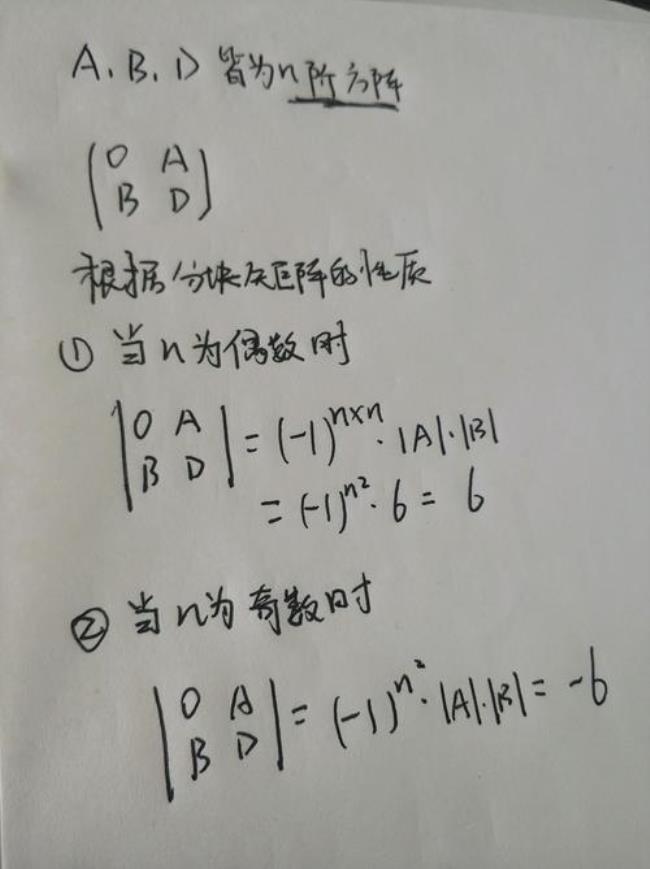 A、B、D 皆为n阶方阵
(0 A
B D)
根据分块矩阵的性质
① 当n为偶数时
|0 A
B D| = (-1)ⁿˣⁿ·|A|·|B|
= (-1)^n²·6 = 6
② 当n为奇数时
|0 A
B D| = (-1)^n²·|A|·|B| = -6